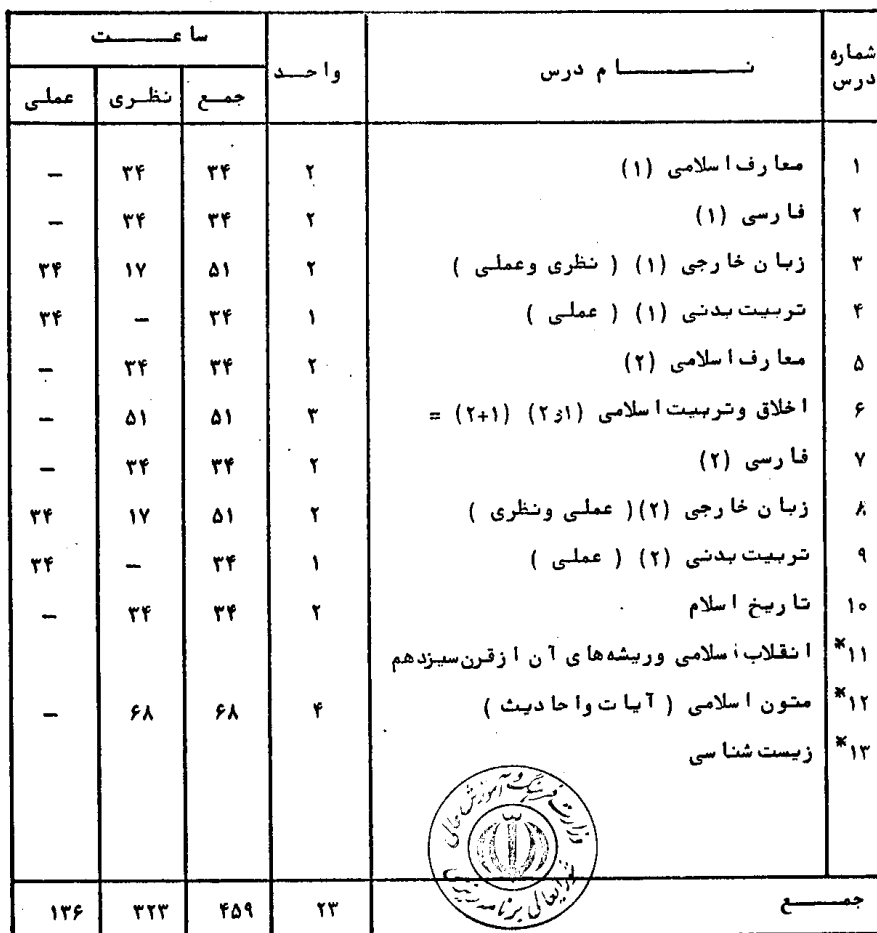 شماره درس | نـــــام درس | واحـد | ساعـــت
جمـع | نظـری | عملـی
۱ | معارف اسلامی (۱) | ۲ | ۳۴ | ۳۴ | –
۲ | فارسی (۱) | ۲ | ۳۴ | ۳۴ | –
۳ | زبان خارجی (۱) ( نظری وعملـی ) | ۲ | ۵۱ | ۱۷ | ۳۴
۴ | تربیت بدنی (۱) ( عملـی ) | ۱ | ۳۴ | – | ۳۴
۵ | معارف اسلامی (۲) | ۲ | ۳۴ | ۳۴ | –
۶ | اخلاق وتربیت اسلامی (۱و۲) (۲+۱) = | ۳ | ۵۱ | ۵۱ | –
۷ | فارسی (۲) | ۲ | ۳۴ | ۳۴ | –
۸ | زبان خارجی (۲)( عملی ونظری ) | ۲ | ۵۱ | ۱۷ | ۳۴
۹ | تربیت بدنی (۲) ( عملـی ) | ۱ | ۳۴ | – | ۳۴
۱۰ | تاریخ اسلام | ۲ | ۳۴ | ۳۴ | –
*۱۱ | انقلاب اسلامی وریشه‌های آن ازقرن سیزدهم
*۱۲ | متون اسلامی ( آیات واحادیث ) | ۴ | ۶۸ | ۶۸ | –
*۱۳ | زیست شناسی
وزارت فرهنگ و آموزش عالی
شورایعالی برنامه ریزی
جمـــع | ۲۳ | ۴۵۹ | ۳۲۳ | ۱۳۶